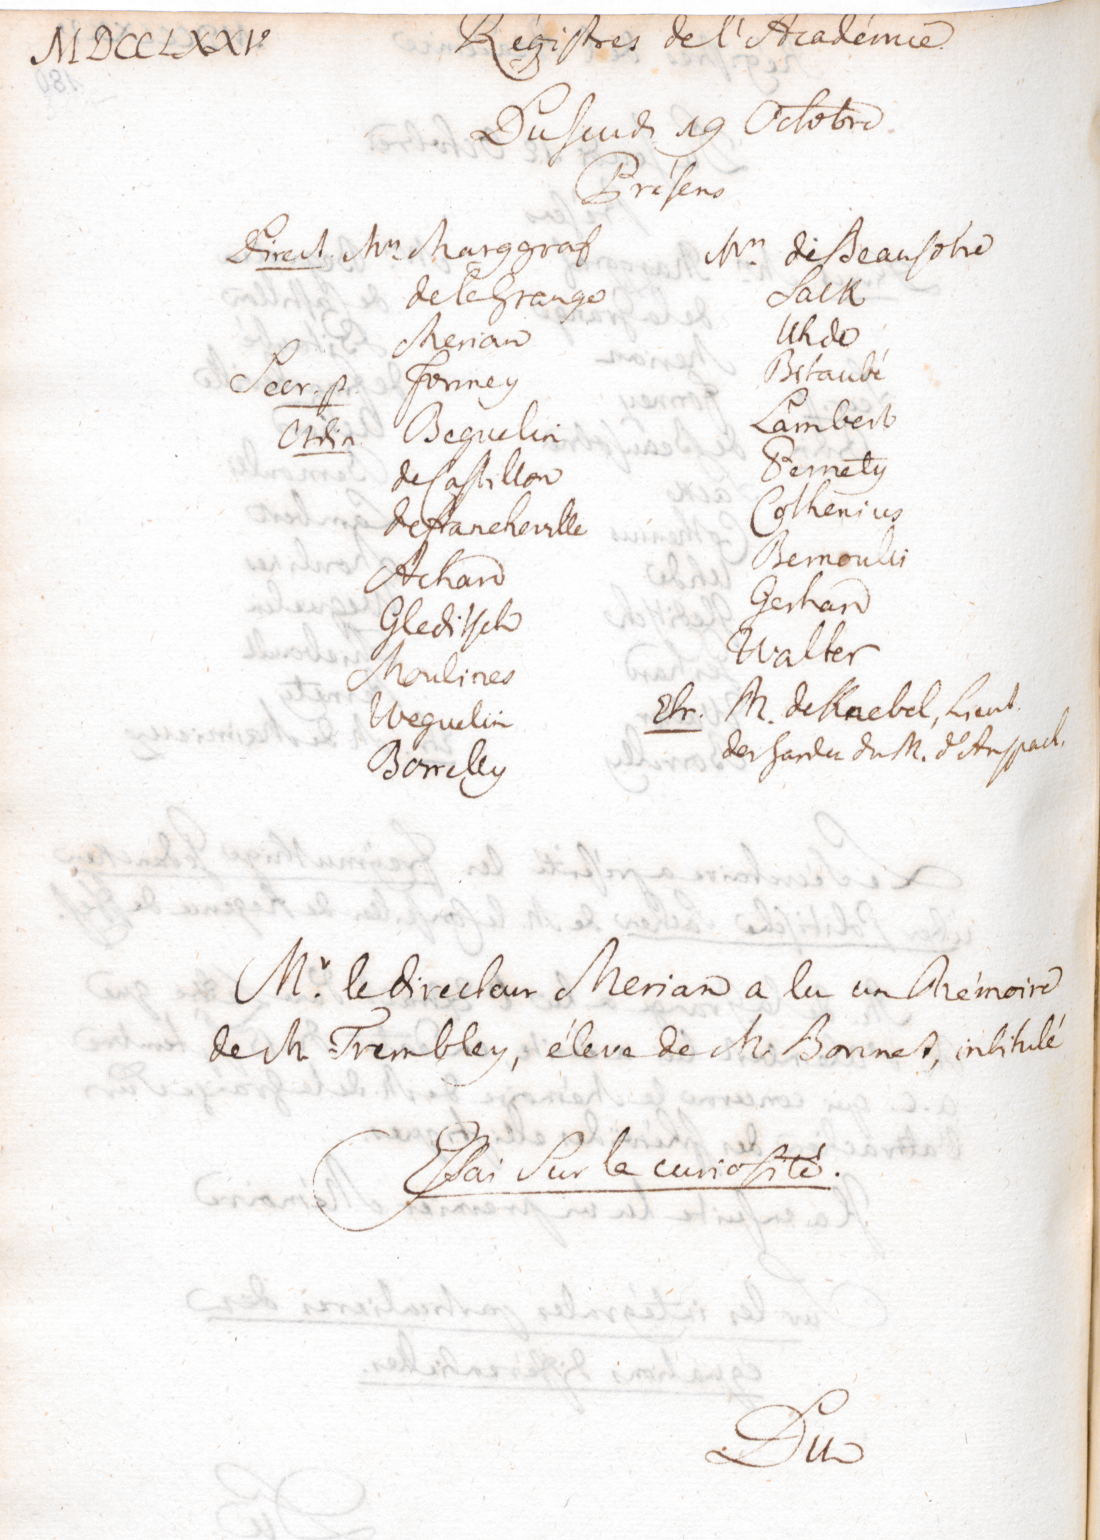 MDCCLXXV.
Régistres de l'Académie
Du Jeudi 19 Octobre.
Présens
Direct. Mrs. Marggraf
de la Grange
Merian
Secr. p. Formey
Ordin. Beguelin
de Castillon
de Francheville
Achard
Gleditsch
Moulines
Weguelin
Borrelly
Mrs. de Beausobre
Sack
Uhde
Bitaubé
Lambert
Pernety
Cothenius
Bernoulli
Gerhard
Walter
Etr. M. de Knebel, Lieut.
des Gardes du M. d'Anspach.
Mr. le directeur Merian a lu un Mémoire
de M. Trembley, éleve de M. Bonnet, intitulé
Essai sur la curiosité.
Du